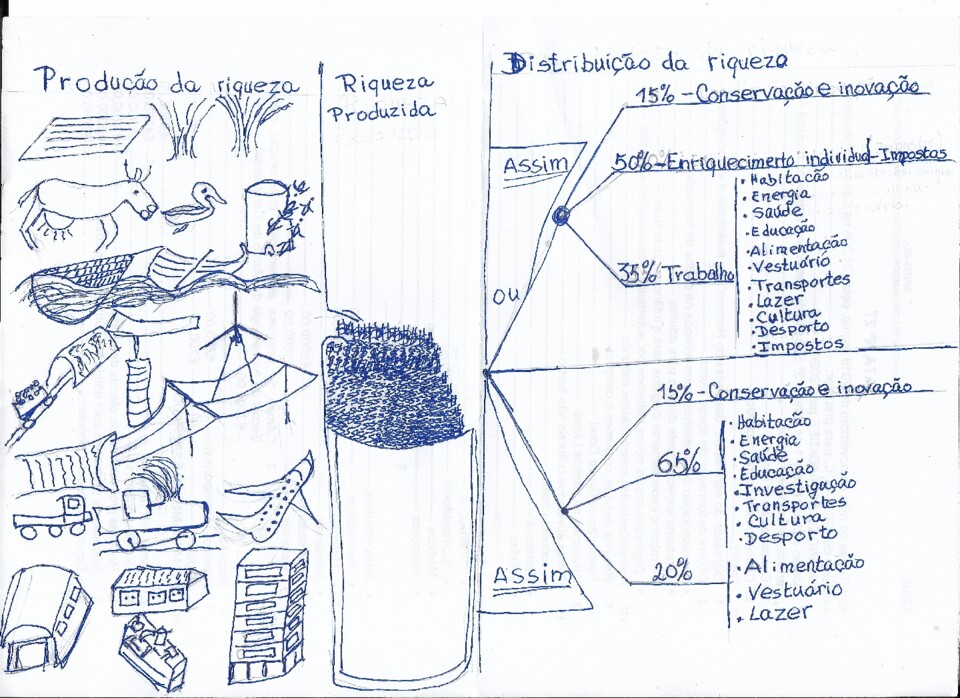 Produção da riqueza
Riqueza
Produzida
Distribuição da riqueza
15% - Conservação e inovação
Assim
50% - Enriquecimento individual - Impostos
35% Trabalho
• Habitação
• Energia
• Saúde
• Educação
• Alimentação
• Vestuário
• Transportes
• Lazer
• Cultura
• Desporto
• Impostos
ou
15% - Conservação e inovação
65%
• Habitação
• Energia
• Saúde
• Educação
• Investigação
• Transportes
• Cultura
• Desporto
Assim
20%
• Alimentação
• Vestuário
• Lazer